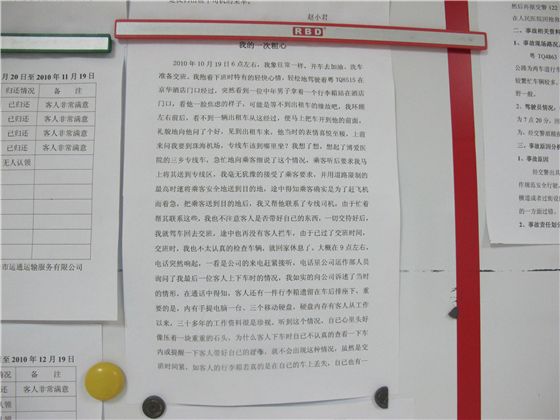 赵小君
RBD
我的一次粗心
2010年10月19日6点左右，我象往常一样，开车去加油、洗车
准备交班。我抱着下班时特有的轻快心情，轻松地驾驶着粤TQ8515在
京华酒店门口经过，突然看到一位中年男子拿着一个行李箱站在酒店
门口，看他一脸焦虑的样子，可能是等不到出租车的缘故吧，我环顾
左右前后，看不到一辆出租车从这经过，便马上把车开到他的面前，
礼貌地向他问了个好，见到出租车来，他当时的表情喜悦至极，上前
来问我要到珠海机场，专线车该到哪里坐？我想了想，想起了博爱医
院的三乡专线车，急忙地向乘客细说了这个情况，乘客听后要求我马
上将其送到专线区，我毫无犹豫的接受了乘客要求，并用道路限制的
最高时速将乘客安全地送到目的地，途中得知乘客确实是为了赶飞机
而着急，把乘客送到目的地后，我又帮他联系了专线司机，由于忙着
帮其联系这些，我也不注意客人是否带好自己的东西，一切交待好后，
我就驾车回去交班，途中也再没有客人拦车，由于已过了交班时间，
交班时，我也不太认真的检查车辆，就回家休息了。大概在9点左右，
电话突然响起，一看是公司的来电赶紧接听，电话里公司运作部人员
询问了我最后一位客人上下车时的情况，我如实的向公司诉述了当时
的情形，在通话中得知，客人还有一件行李箱遗留在车后排座下，重
要的是，内有手提电脑一台、三个移动硬盘，硬盘内存有客人从工作
以来，三十多年的工作资料很是珍视，听到这个情况，自己心里头好
像压着一块重重的石头，为什么客人下车时自己不认真的查看一下车
内或提醒一下客人带好自己的行李，就不会出现这种情况，虽然是交
班时间紧，如客人的行李箱若真的是在自己的车上丢失，自己也有一
月20日至2010年11月19日
归还情况 备 注
已归还 客人非常满意
已归还 客人非常满意
已归还 客人非常满意
已归还 客人非常满意
无人认领
市运通运输服务有限公司
至2010年12月19日
情况 备 注
归还 客人非常满意
然后再报交警122
在人民医院因抢救
二、事故相关资料
1、事故现场路况，
粤TQ4863
公路为两车道行车
较繁忙车辆较多，
好一般。
2、驾驶员情况，
为7点20分，
三、事故原因分析
1、事故
经交警出具
作规范安全行驶，
横道或者过街设
的一方面过错。
2、事故责任划分